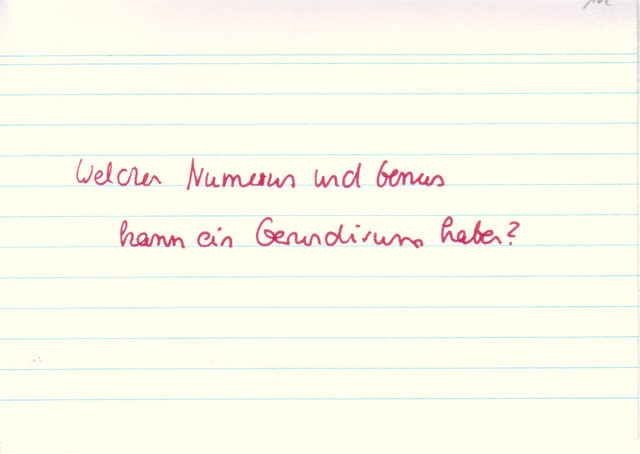 Welchen Numerus und Genus
kann ein Gerundivum haben?